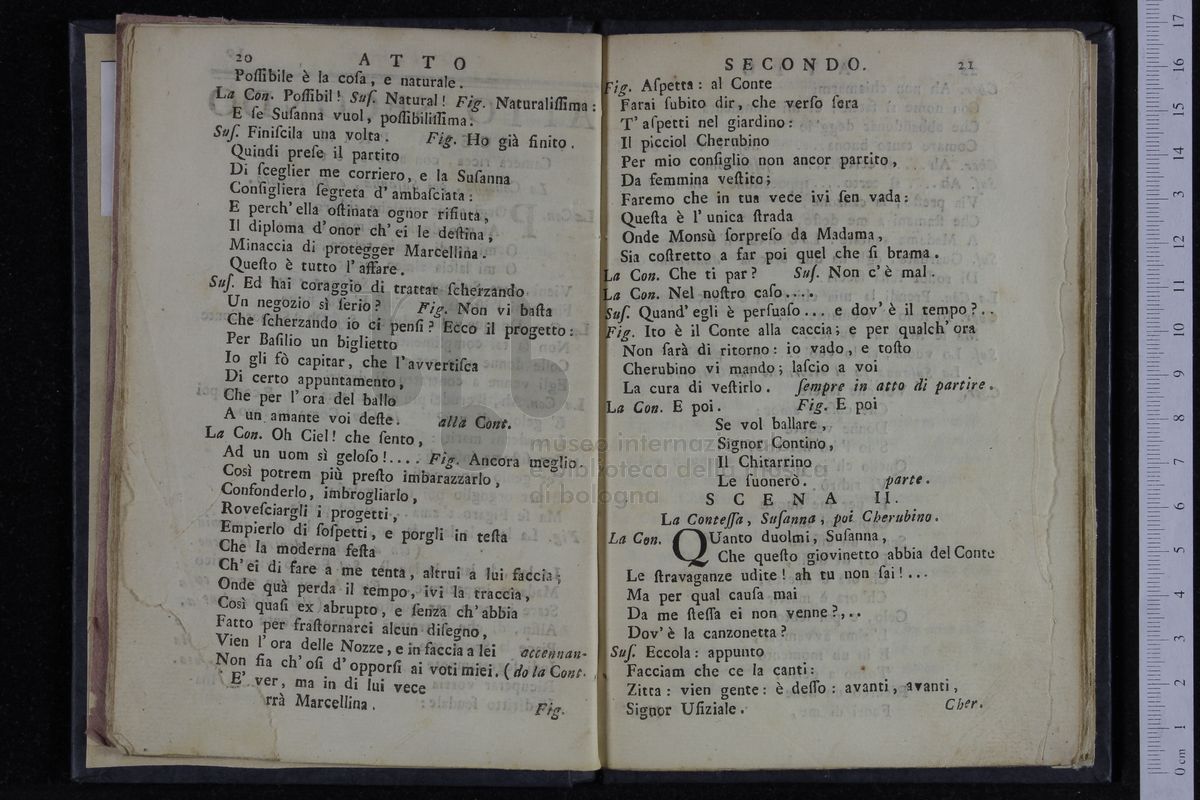 20 ATTO
Poſſibile è la coſa, e naturale.
La Con. Poſſibil! Suſ. Natural! Fig. Naturaliſſima:
E ſe Suſanna vuol, poſſibiliſſima.
Suſ. Finiſcila una volta. Fig. Ho già finito.
Quindi preſe il partito
Di ſceglier me corriero, e la Suſanna
Conſigliera ſegreta d'ambaſciata:
E perch'ella oſtinata ognor rifiuta,
Il diploma d'onor ch'ei le deſtina,
Minaccia di protegger Marcellina.
Queſto è tutto l'affare.
Suſ. Ed hai coraggio di trattar ſcherzando
Un negozio sì ſerio? Fig. Non vi baſta
Che ſcherzando io ci penſi? Ecco il progetto:
Per Baſilio un biglietto
Io gli fò capitar, che l'avvertiſca
Di certo appuntamento,
Che per l'ora del ballo
A un amante voi deſte. alla Cont.
La Con. Oh Ciel! che ſento,
Ad un uom sì geloſo!.... Fig. Ancora meglio.
Così potrem più preſto imbarazzarlo,
Confonderlo, imbrogliarlo,
Roveſciargli i progetti,
Empierlo di ſoſpetti, e porgli in teſta
Che la moderna feſta
Ch'ei di fare a me tenta, altrui a lui faccia;
Onde quà perda il tempo, ivi la traccia,
Così quaſi ex abrupto, e ſenza ch'abbia
Fatto per fraſtornarci alcun diſegno,
Vien l'ora delle Nozze, e in faccia a lei accennan-
Non fia ch'oſi d'opporſi ai voti miei. (do la Cont.
E' ver, ma in di lui vece
rrà Marcellina. Fig.
SECONDO. 21
Fig. Aſpetta: al Conte
Farai ſubito dir, che verſo ſera
T'aſpetti nel giardino:
Il picciol Cherubino
Per mio conſiglio non ancor partito,
Da femmina veſtito;
Faremo che in tua vece ivi ſen vada:
Queſta è l'unica ſtrada
Onde Monsù ſorpreſo da Madama,
Sia coſtretto a far poi quel che ſi brama.
La Con. Che ti par? Suſ. Non c'è mal.
La Con. Nel noſtro caſo....
Suſ. Quand'egli è perſuaſo... e dov'è il tempo?..
Fig. Ito è il Conte alla caccia; e per qualch'ora
Non ſarà di ritorno: io vado, e toſto
Cherubino vi mando; laſcio a voi
La cura di veſtirlo. ſempre in atto di partire.
La Con. E poi. Fig. E poi
Se vol ballare,
Signor Contino,
Il Chitarrino
Le ſuonerò. parte.
SCENA II.
La Conteſſa, Suſanna, poi Cherubino.
La Con. QUanto duolmi, Suſanna,
Che queſto giovinetto abbia del Conte
Le ſtravaganze udite! ah tu non ſai!...
Ma per qual cauſa mai
Da me ſteſſa ei non venne?,..
Dov'è la canzonetta?
Suſ. Eccola: appunto
Facciam che ce la canti:
Zitta: vien gente: è deſſo: avanti, avanti,
Signor Ufiziale. Cher.
museo internazionale
e biblioteca della musica
di bologna
0 cm 1 2 3 4 5 6 7 8 9 10 11 12 13 14 15 16 17